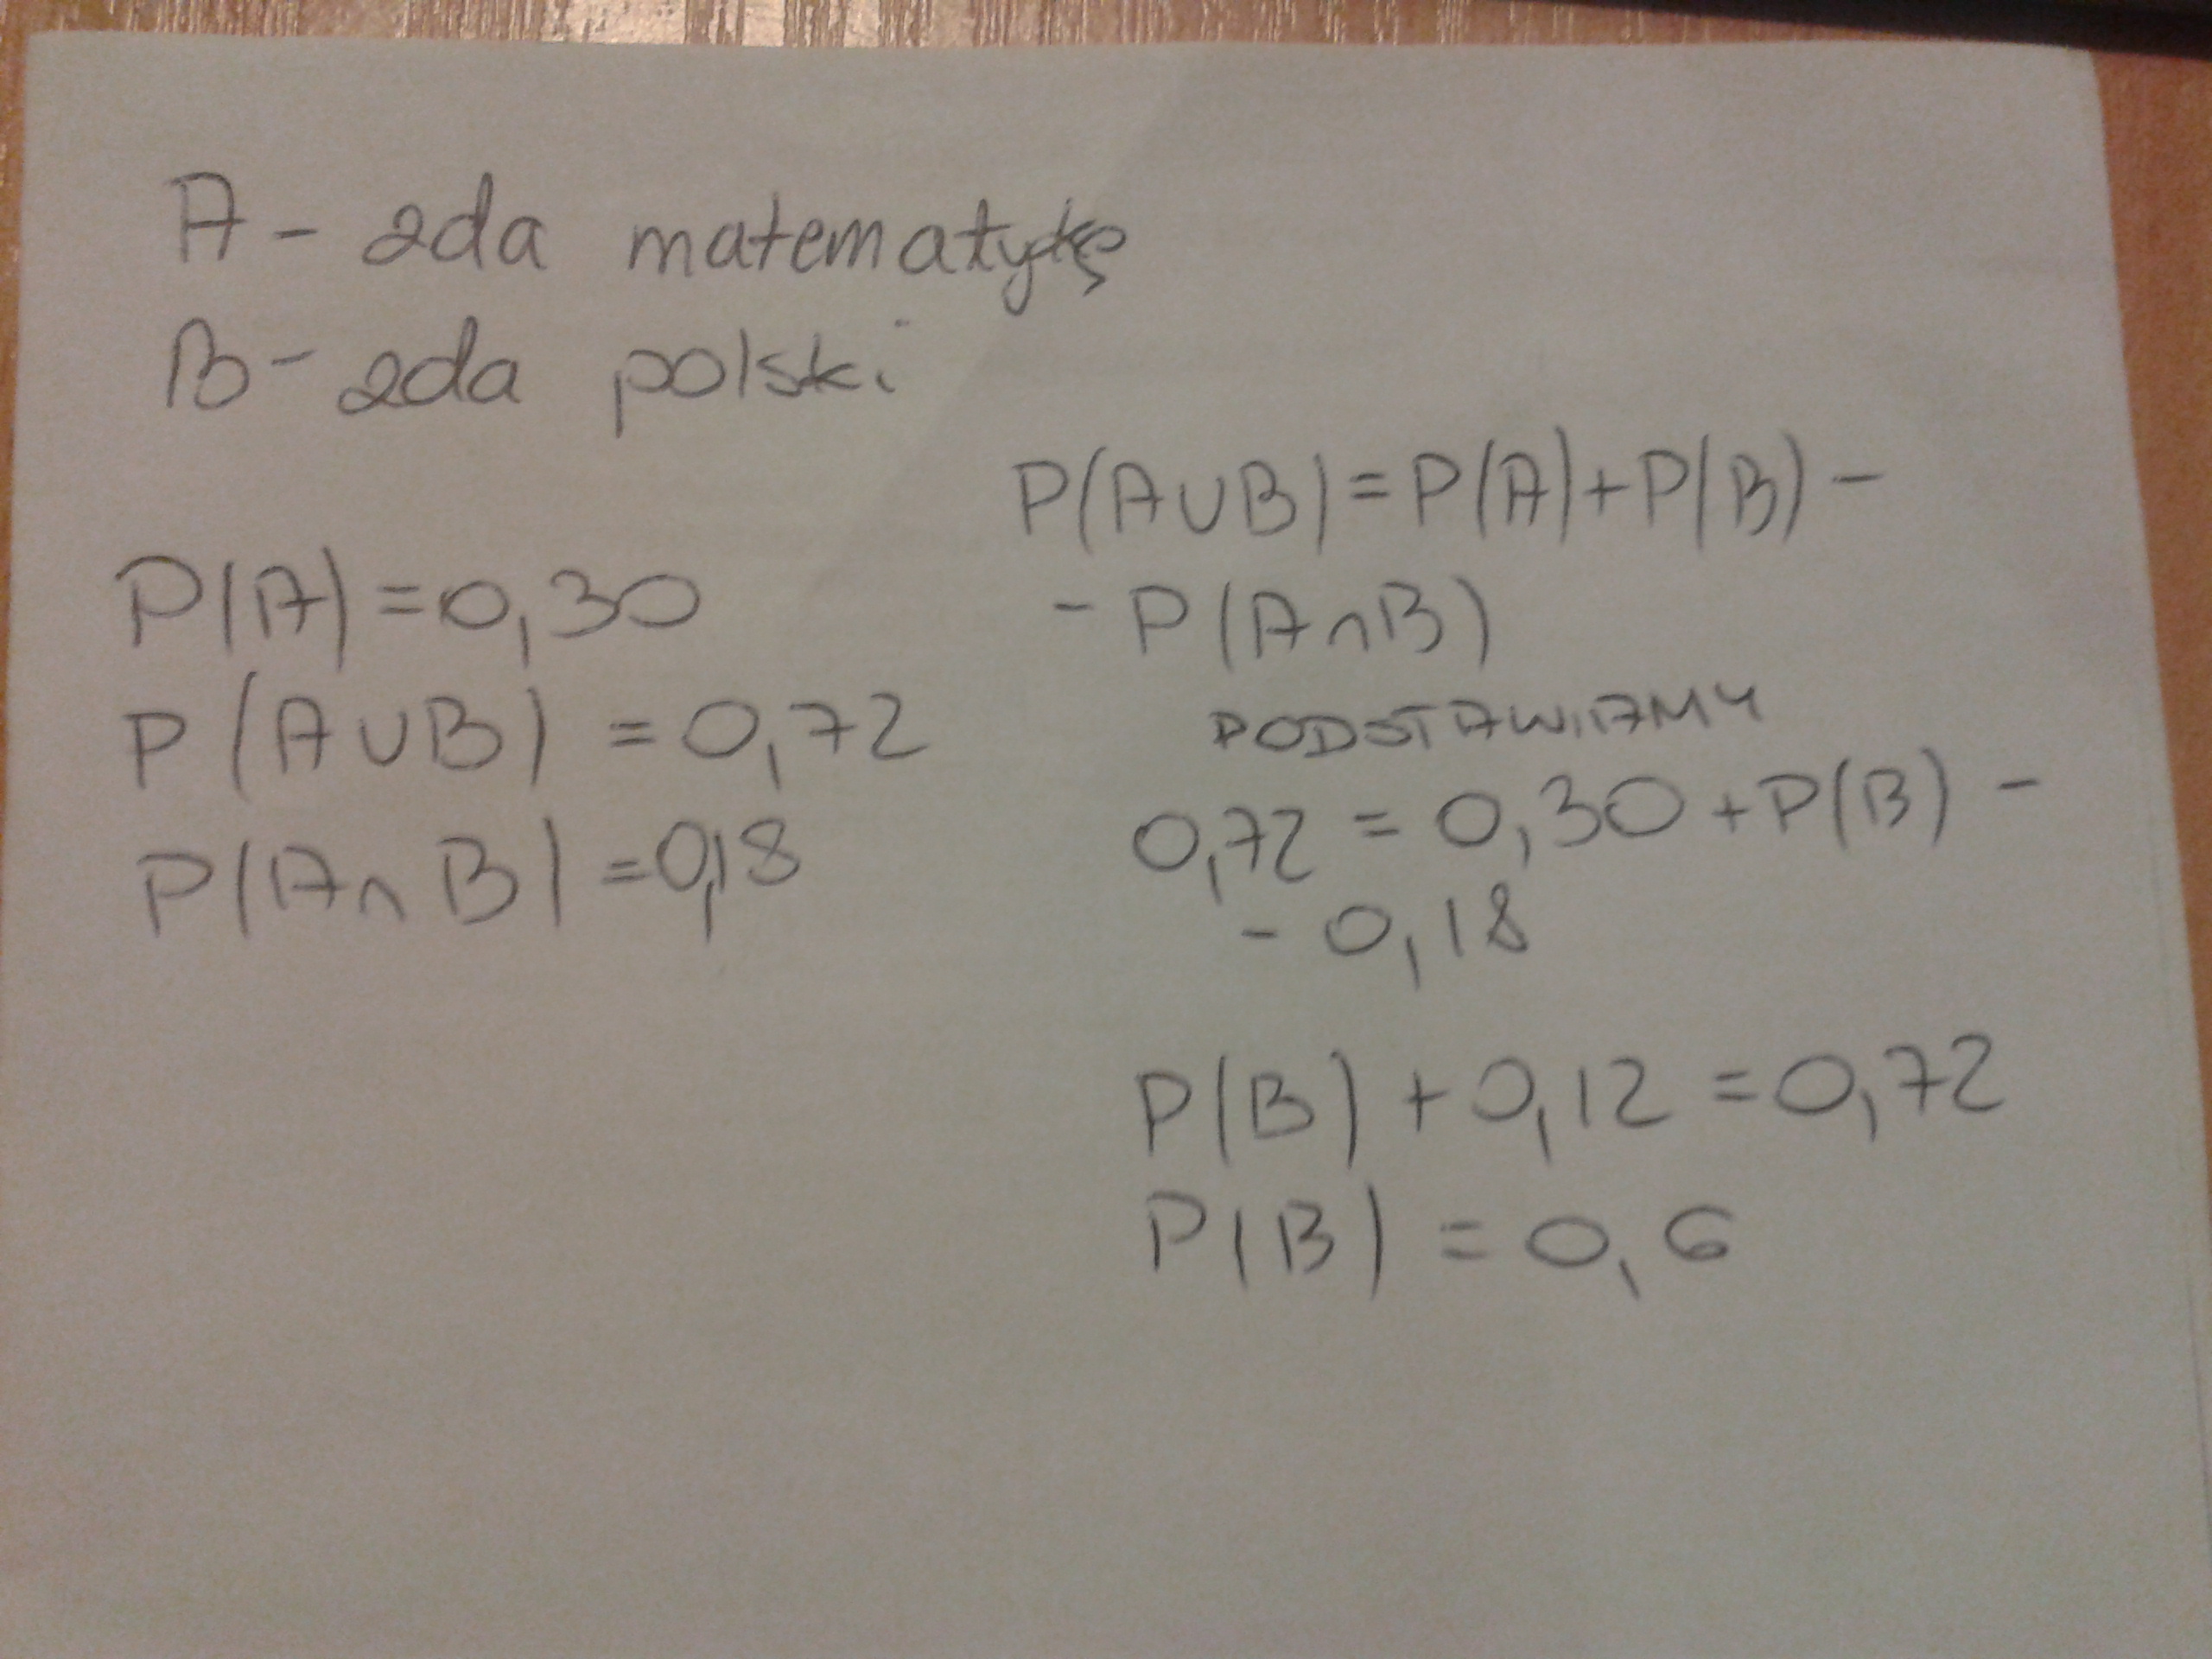 A - zda matematykę
B - zda polski
P(A) = 0,30
P(A∪B) = 0,72
P(A∩B) = 0,18
P(A∪B) = P(A) + P(B) -
- P(A∩B)
PODSTAWIAMY
0,72 = 0,30 + P(B) -
- 0,18
P(B) + 0,12 = 0,72
P(B) = 0,6